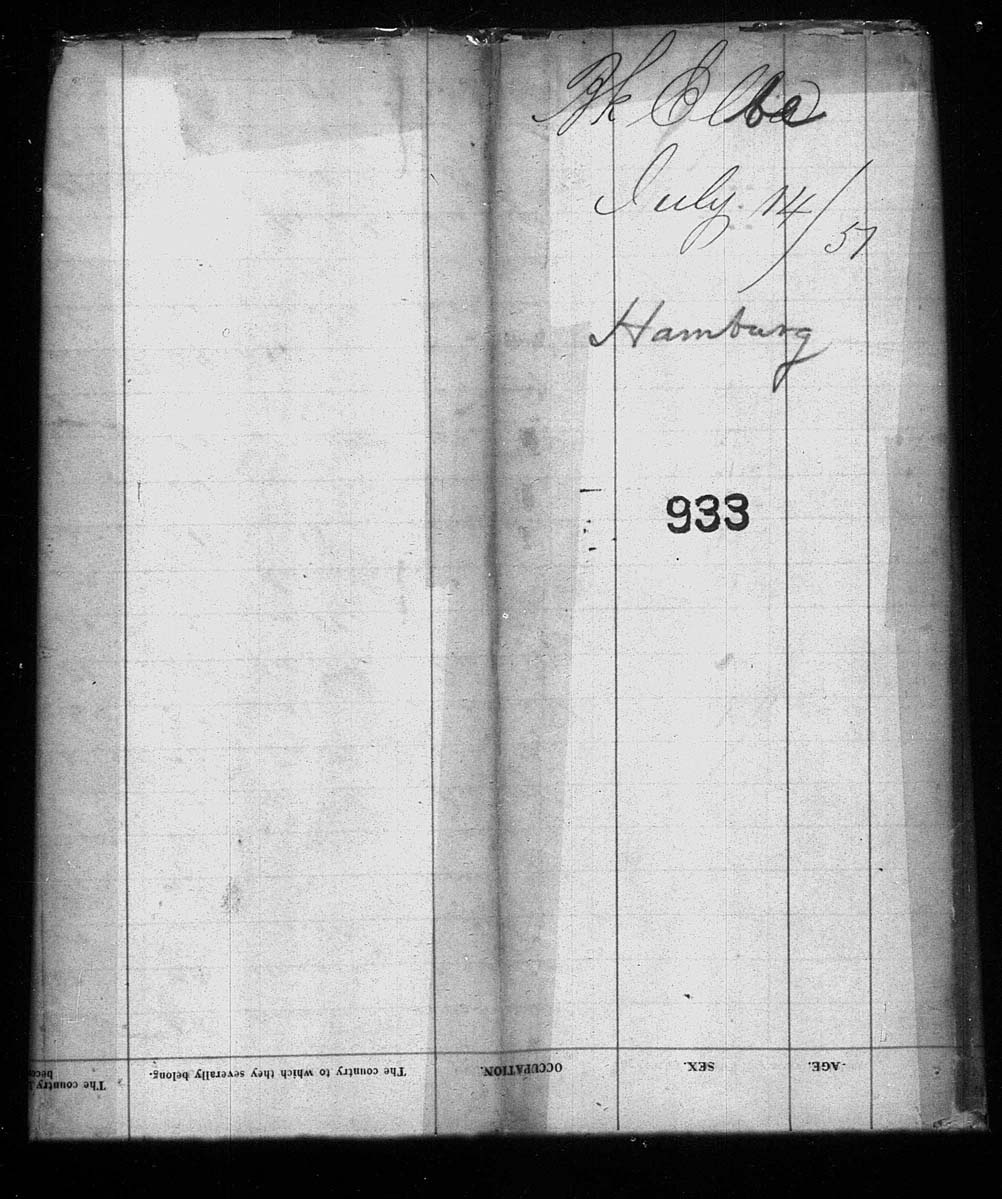 Bk Elbe
July 14/57
Hamburg
933
AGE.
SEX.
OCCUPATION.
The country to which they severally belong.
The country